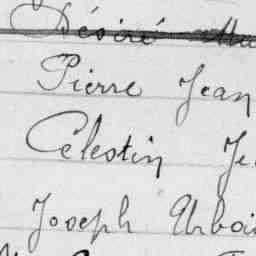 Désiré
Pierre Jean
Celestin Je
Joseph Urbai